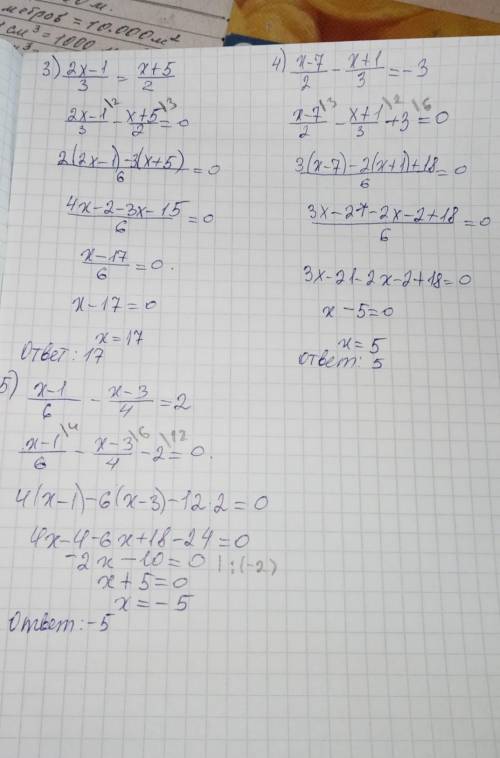 метров = 10.000 м²
см³ = 1000
3) (2x-1)/3 = (x+5)/2
(2x-1\2)/3 - (x+5\3)/2 = 0
(2(2x-1)-3(x+5))/6 = 0
(4x-2-3x-15)/6 = 0
(x-17)/6 = 0.
x-17=0
x=17
Ответ: 17
4) (x-7)/2 - (x+1)/3 = -3
(x-7\3)/2 - (x+1\2)/3 + 3\6 = 0
(3(x-7)-2(x+1)+18)/6 = 0
(3x-21-2x-2+18)/6 = 0
3x-21-2x-2+18=0
x-5=0
x=5
ответ: 5
5) (x-1)/6 - (x-3)/4 = 2
(x-1\4)/6 - (x-3\6)/4 - 2\12 = 0.
4(x-1)-6(x-3)-12·2=0
4x-4-6x+18-24=0
-2x-10=0 |:(-2)
x+5=0
x=-5
Ответ: -5